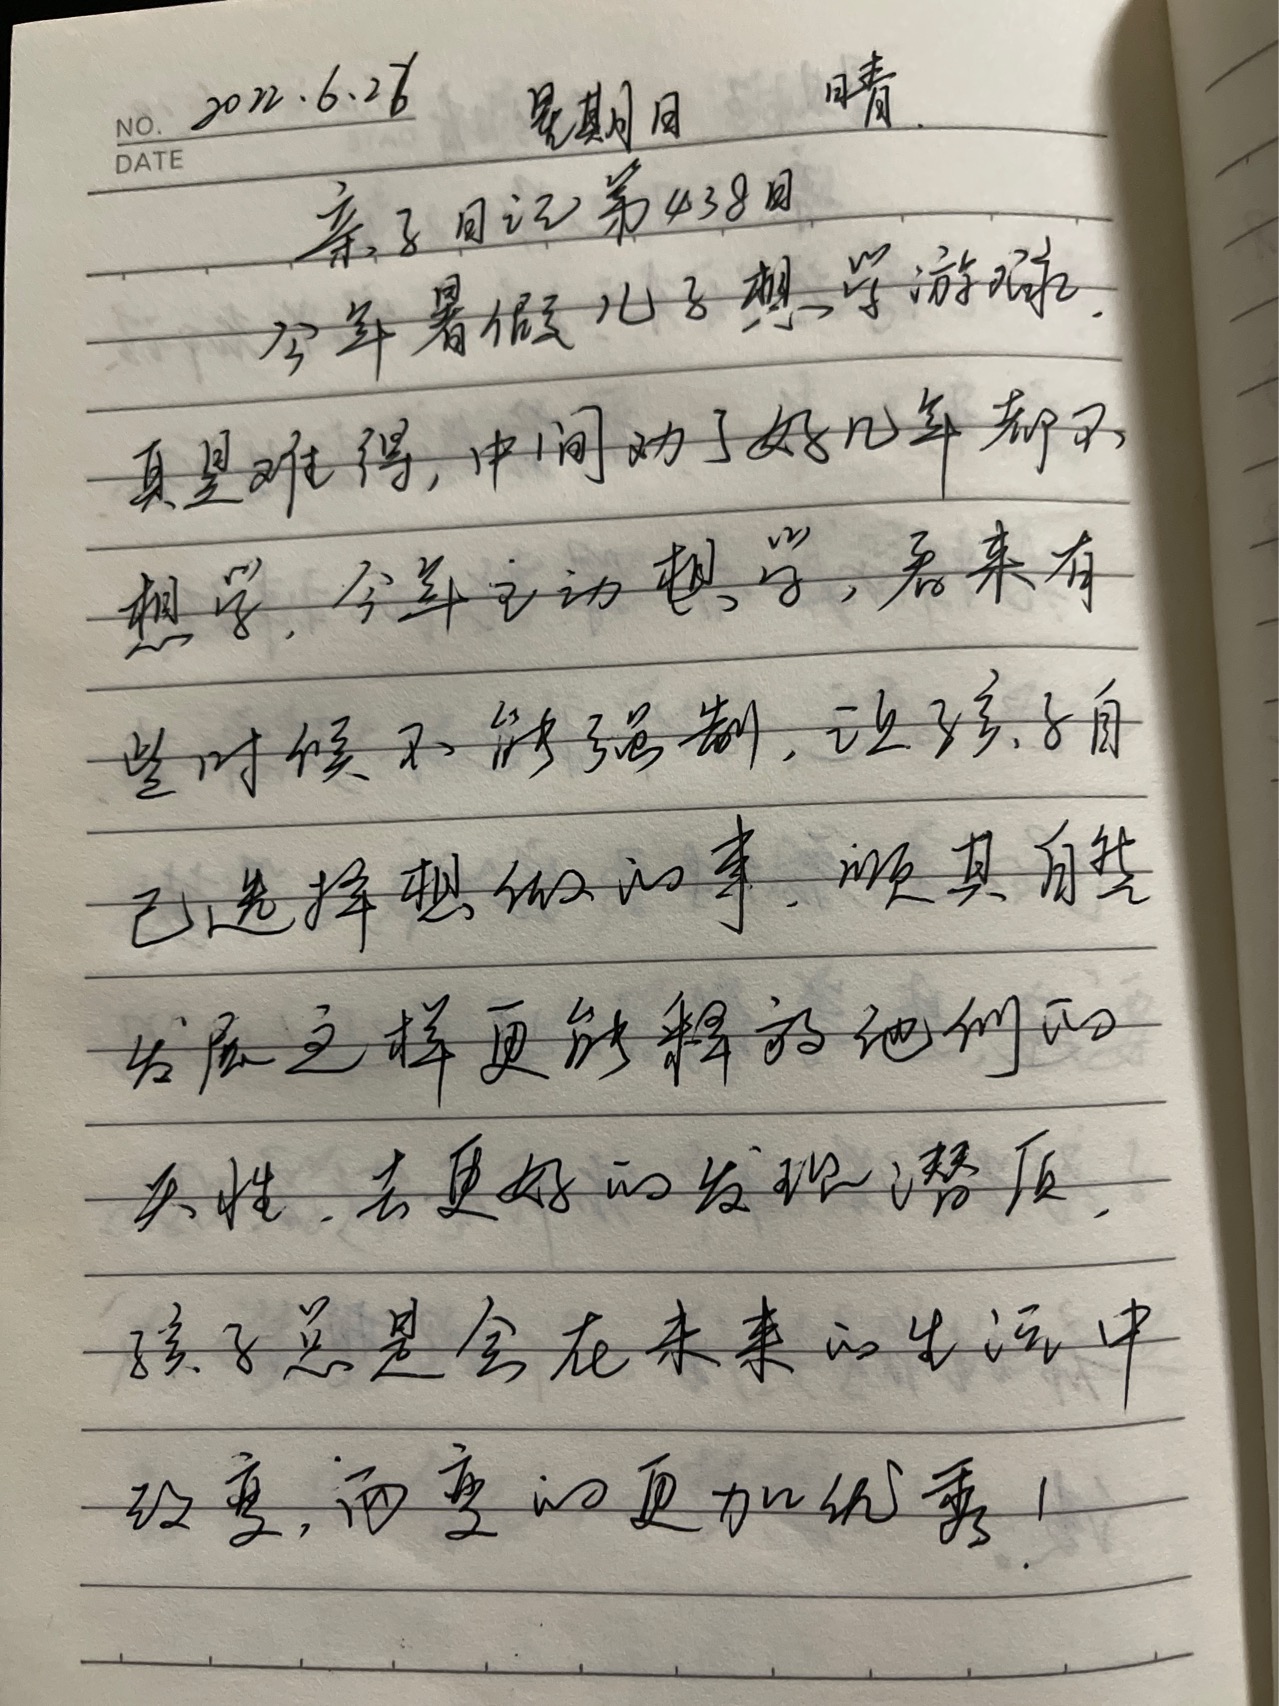 NO. 2022.6.26 星期日 晴.
DATE
亲子日记第438日
今年暑假儿子想学游泳.
真是难得,中间劝了好几年都不
想学.今年主动想学,看来有
些时候不能强制.让孩子自
己选择想做的事.顺其自然
发展这样更能释放他们的
天性.去更好的发现潜质,
孩子总是会在未来的生活中
改变,而变的更加优秀!